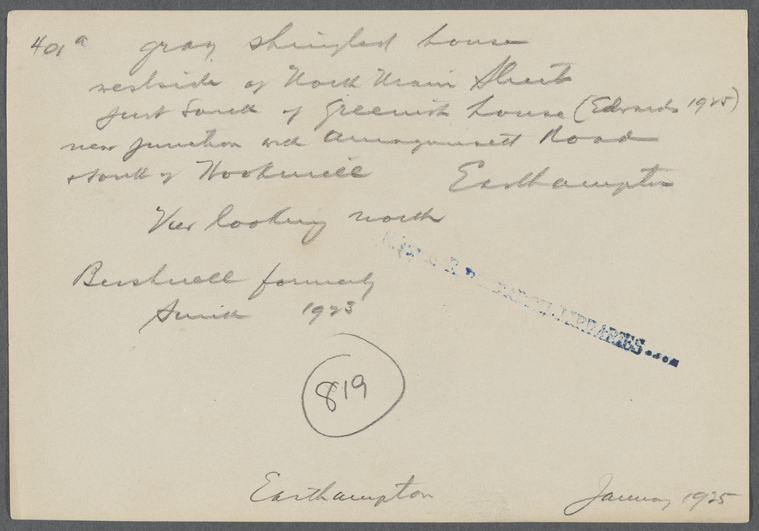 401a gray shingled house
westside of North Main Street
just South of Greenish house (Edwards 1925)
near junction with Amagansett Road
& South of Hookmill Easthampton
View looking north
Bushnell formerly
Smith 1923
LIBRARIES....
819
Easthampton January 1925